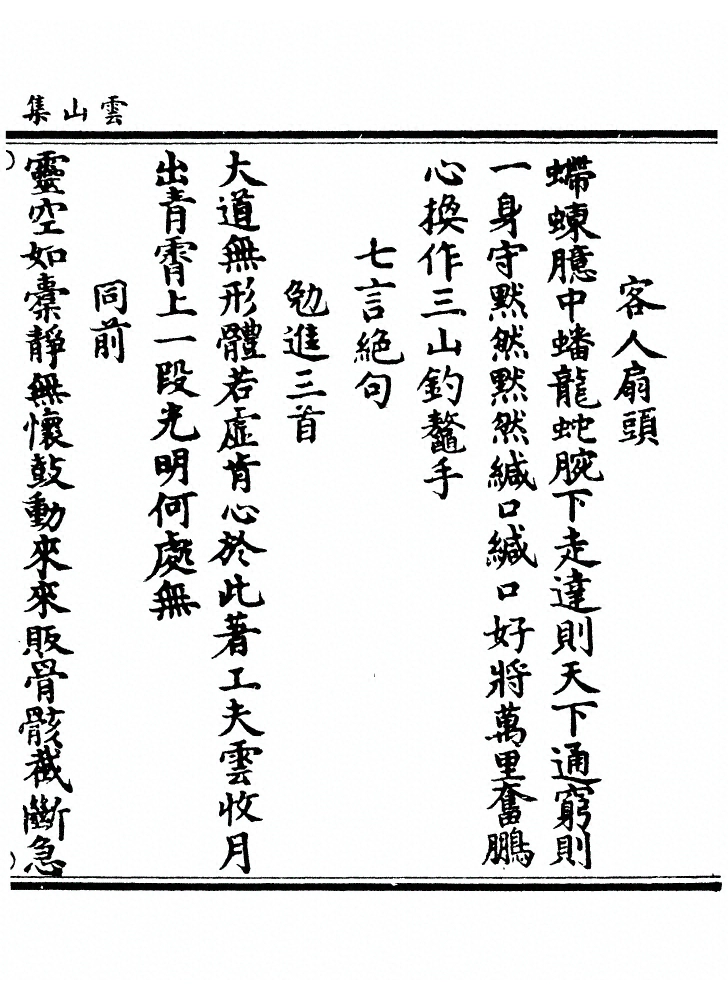 雲山集
客人扇頭
螮蝀臆中蟠龍蛇腕下走達則天下通窮則
一身守默然默然緘口緘口好將萬里奮鵬
心換作三山釣鼇手
七言絕句
勉進三首
大道無形體若虛肯心於此著工夫雲收月
出青霄上一段光明何處無
同前
靈空如橐靜無懷鼓動來來販骨骸截斷急